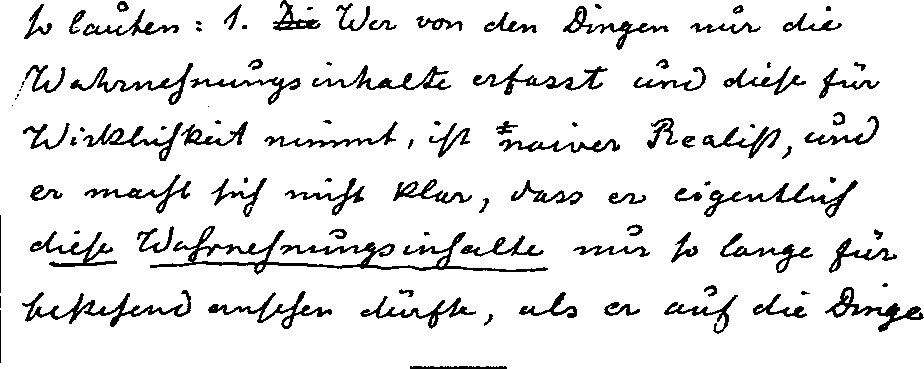 so lauten: 1. Die Wer von den Dingen nur die
Wahrnehmungsinhalte erfasst und diese für
Wirklichkeit nimmt, ist naiver Realist, und
er macht sich nicht klar, dass er eigentlich
diese Wahrnehmungsinhalte nur so lange für
bestehend ansehen dürfte, als er auf die Dinge